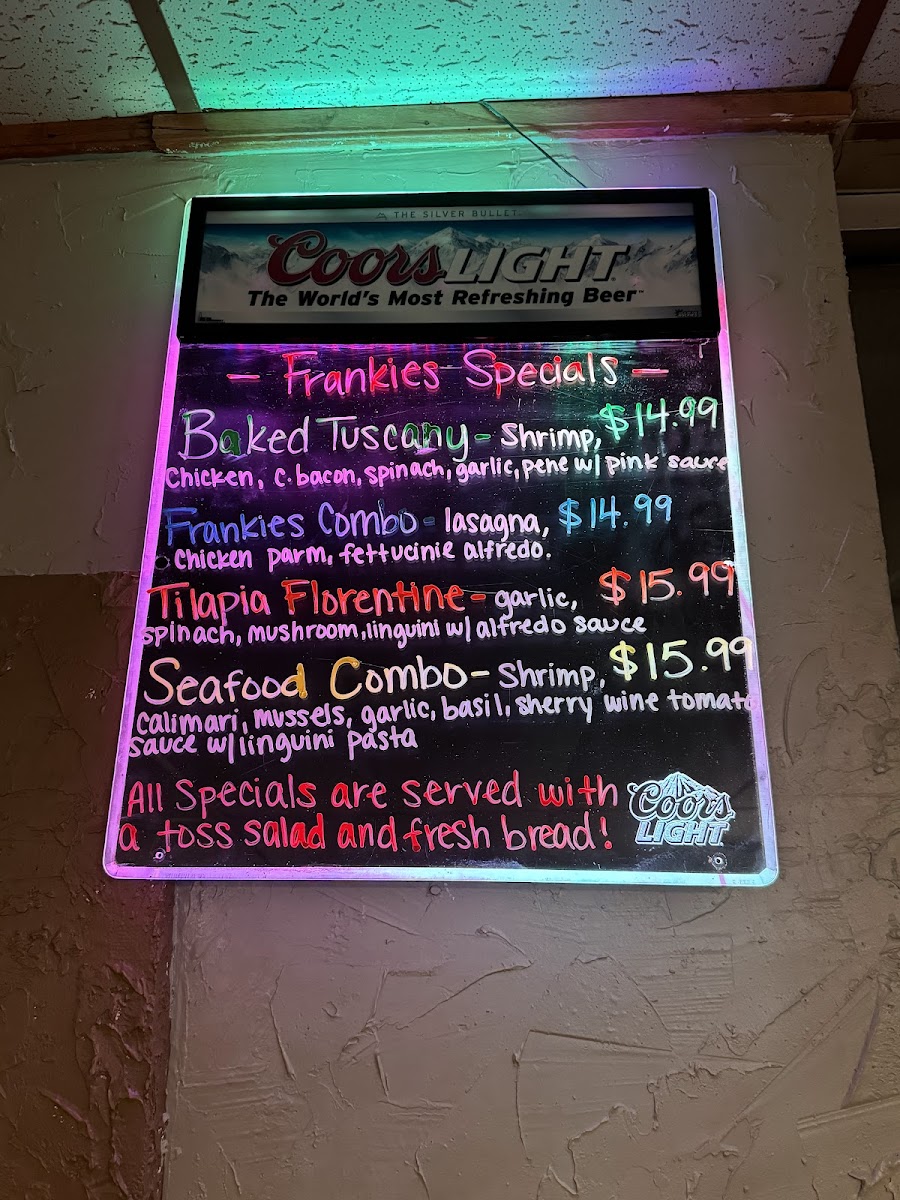 THE SILVER BULLET
Coors LIGHT
The World's Most Refreshing Beer™
- Frankies Specials -
Baked Tuscany - Shrimp, $14.99
Chicken, C. bacon, spinach, garlic, pene w/ pink sauce
Frankies Combo - lasagna, $14.99
Chicken parm, fettucinie alfredo.
Tilapia Florentine - garlic, $15.99
spinach, mushroom, linguini w/ alfredo sauce
Seafood Combo - Shrimp, $15.99
calimari, mussels, garlic, basil, sherry wine tomato
sauce w/ linguini pasta
All Specials are served with
a toss salad and fresh bread!
Coors
LIGHT